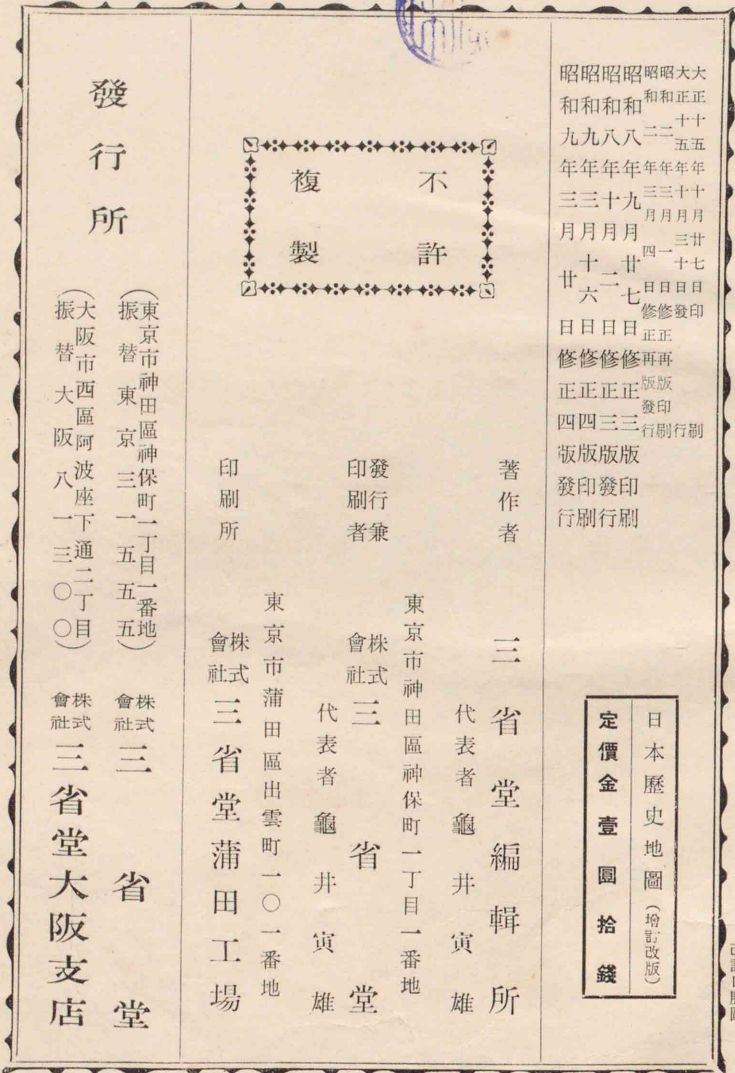 大正十五年十月廿七日印刷
大正十五年十月三十日發行
昭和二年三月一日修正再版印刷
昭和二年三月四日修正再版發行
昭和八年九月廿七日修正三版印刷
昭和八年十月二日修正三版發行
昭和九年三月十六日修正四版印刷
昭和九年三月廿日修正四版發行
日本歷史地圖(增訂改版)
定價金壹圓拾錢
不許
複製
著作者 三省堂編輯所
代表者 龜井寅雄
東京市神田區神保町一丁目一番地
發行兼印刷者 株式會社三省堂
代表者 龜井寅雄
東京市蒲田區出雲町一〇一番地
印刷所 株式會社三省堂蒲田工場
發行所
(東京市神田區神保町一丁目一番地
振替東京三一五五五) 株式會社三省堂
(大阪市西區阿波座下通二丁目
振替大阪八一三〇〇) 株式會社三省堂大阪支店